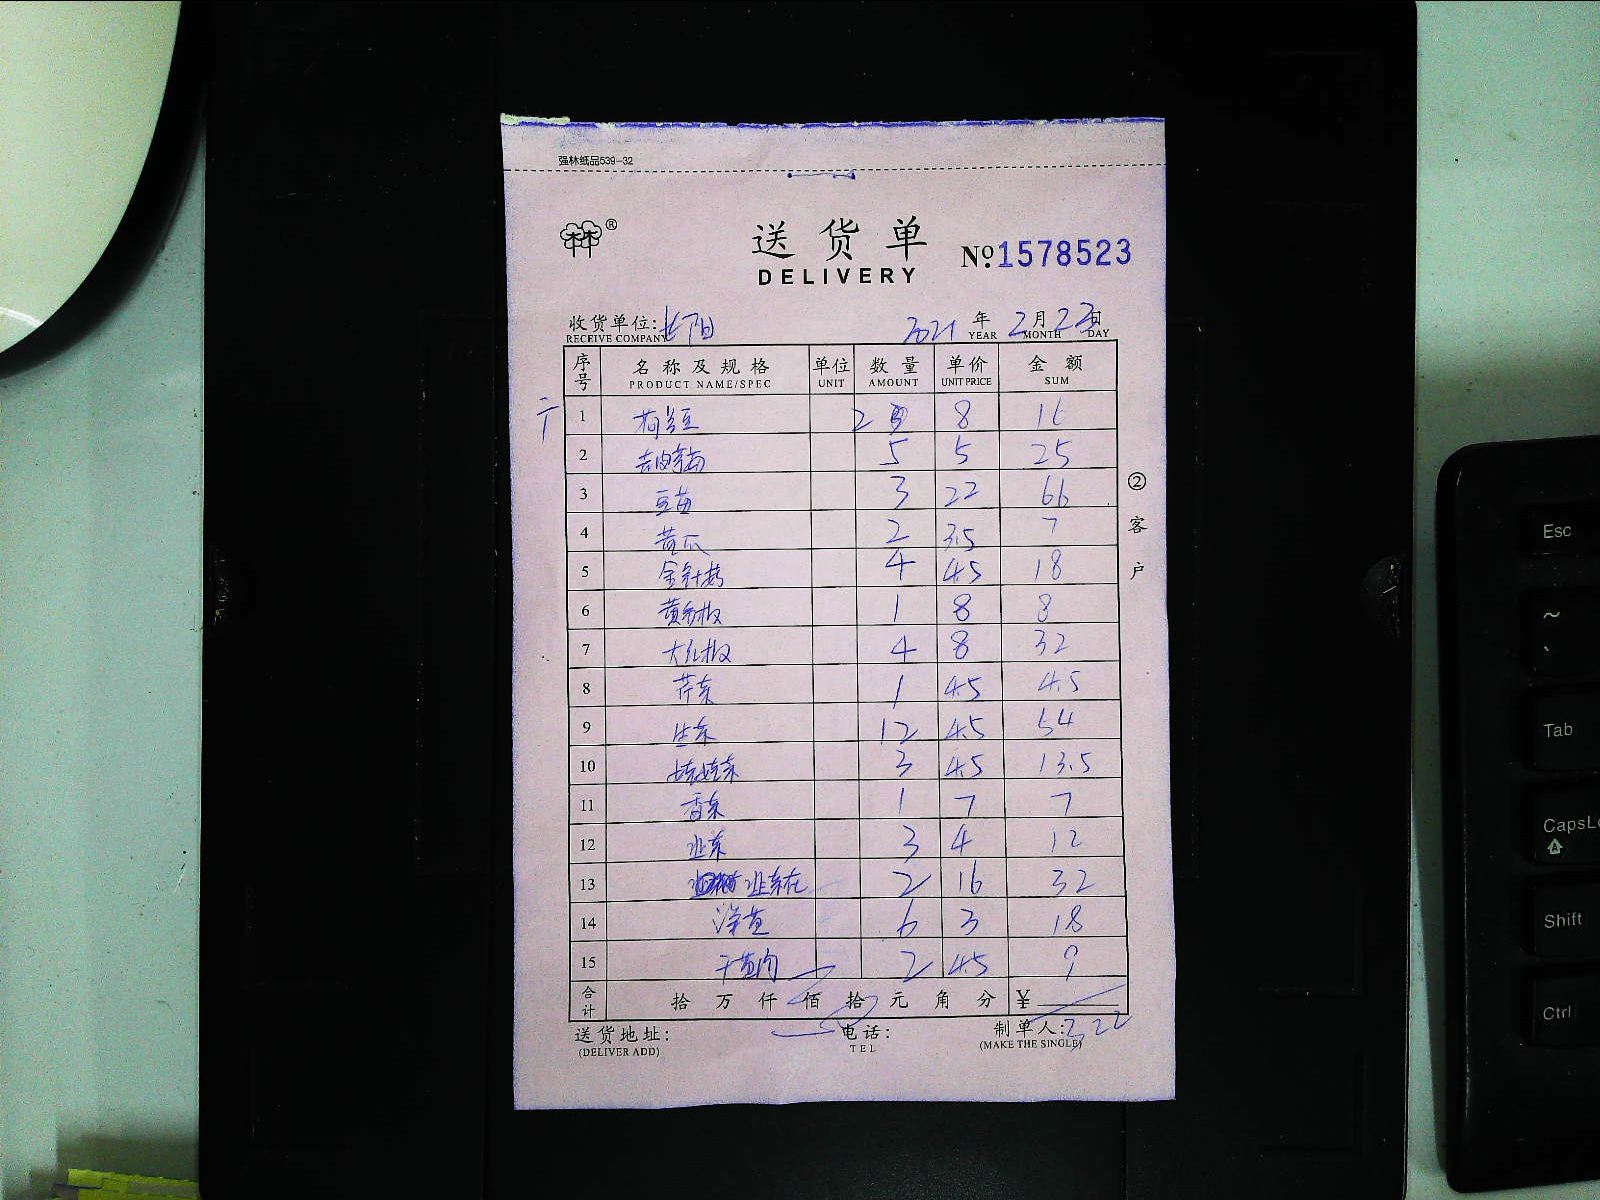 强林纸品539-32
®
送货单
DELIVERY
No 1578523
收货单位:长阳 2021年2月23日
RECEIVE COMPANY YEAR MONTH DAY
序号 名称及规格 单位 数量 单价 金额
PRODUCT NAME/SPEC UNIT AMOUNT UNIT PRICE SUM
1 荷兰豆 2 8 16
2 5 5 25
3 豆苗 3 22 66
4 黄瓜 2 3.5 7
5 金针菇 4 4.5 18
6 黄彩椒 1 8 8
7 大红椒 4 8 32
8 芹菜 1 4.5 4.5
9 生菜 12 4.5 54
10 娃娃菜 3 4.5 13.5
11 香菜 1 7 7
12 韭菜 3 4 12
13 韭菜花 2 16 32
14 6 3 18
15 2 4.5 9
合计 拾万仟佰拾元角分 ¥
送货地址: 电话: 制单人: 322
(DELIVER ADD) TEL (MAKE THE SINGLE)
②客户
Esc
~
Tab
CapsLo
Shift
Ctrl